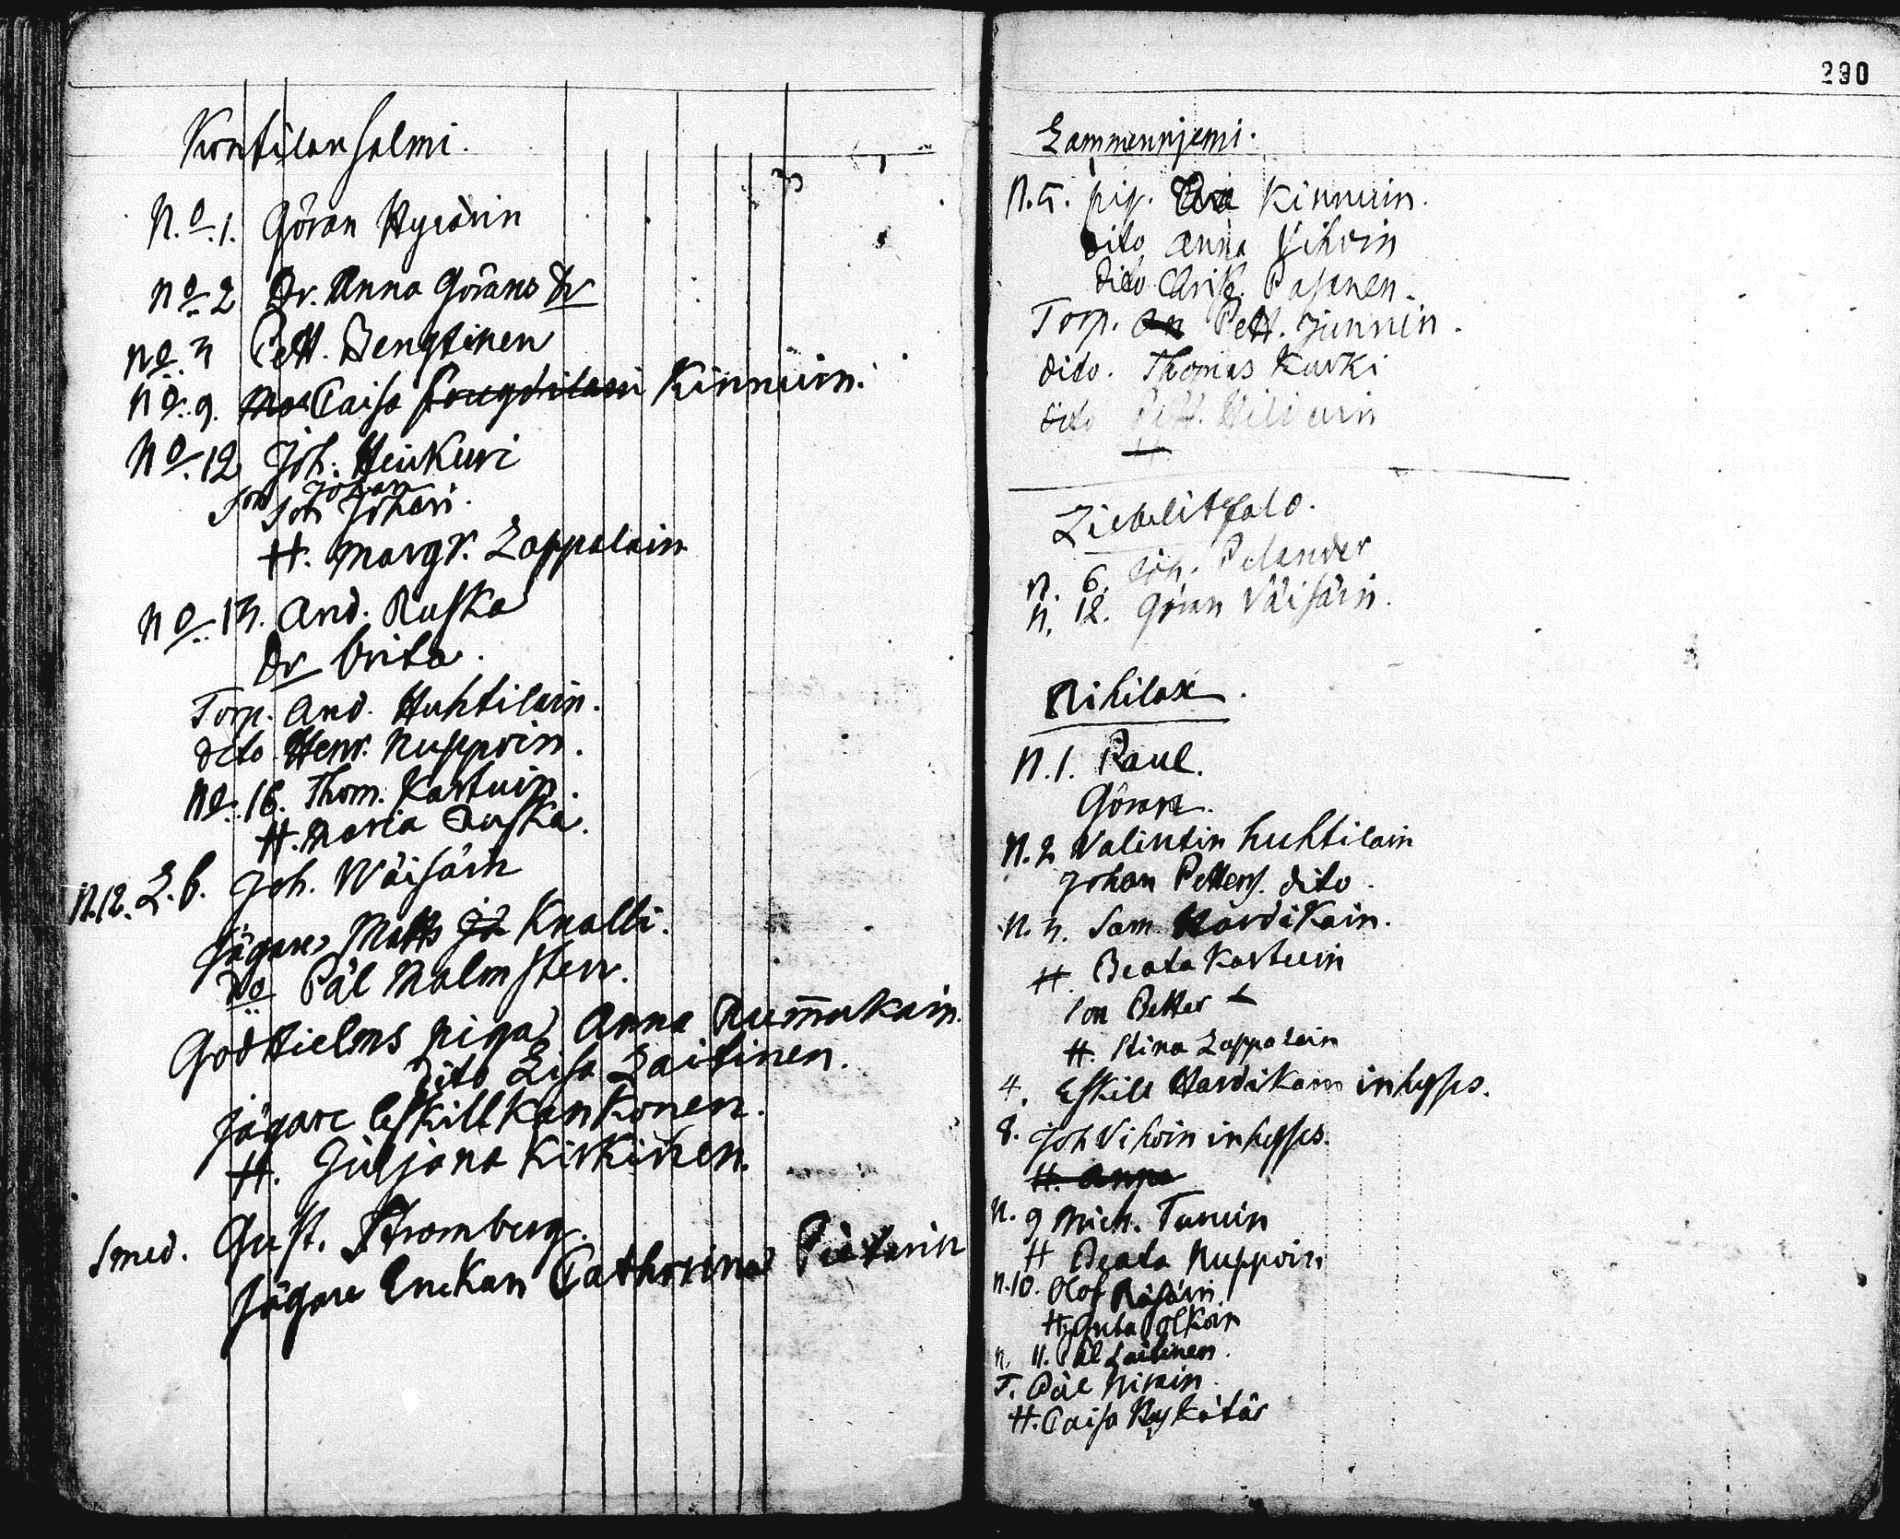 Kontilansalmi.
N.o.1. Göran Hyvärin
No 2 Dr. Anna Görans Dr
No 3 Pett. Bengtinen
No. 9. Caisa Kinnuin.
No. 12 Joh. Heiskuri
Son Joh Johan
Johan.
H. Margr. Lappalain
No. 13. And. Ruska
Dr brita.
Torp. And. Huhtilain.
dito Henr. Nuppoin.
No. 16. Thom. Kartuin.
H. Maria Ruska.
N.12. L.b. Joh. Wäisäin
Jägare Matts Knalli.
Do Pål Malmsten.
Godthielms piga Anna Rummukain.
Dito Lisa Laitinen.
Jägare Eskill Kankonen.
H. Juljana Kirkinen.
Smed. Gust. Stromberg.
Jägare Enckan Cathrina
290
Lammenniemi.
N.5. pig. Kinnuin.
Dito Anna Vihoin
Dito Pasanen.
Torp. Pett. Junnin.
dito. Thomas Kurki
dito Pett.
Liebelitsalo.
N. 6. Joh. Pelander
N. 12. Göran Väisäin.
Rihilax.
N.1. Paul.
Göran.
N.2 Valintin huhtilain
Johan Petters. dito.
N.3. Sam. Hardikain.
H. Beata Kartuin
Son Petter
H. Stina Lappalain
4. Eskill Hardikain inhyses.
8. Joh Vihoin inhyses.
H. Anna
N. 9 Mich. Turuin
H Beata Nuppoin
N.10. Olof Räsäin
H. Olkoin
N. 11. Pål Laitinen.
T. Pål
H. Caisa